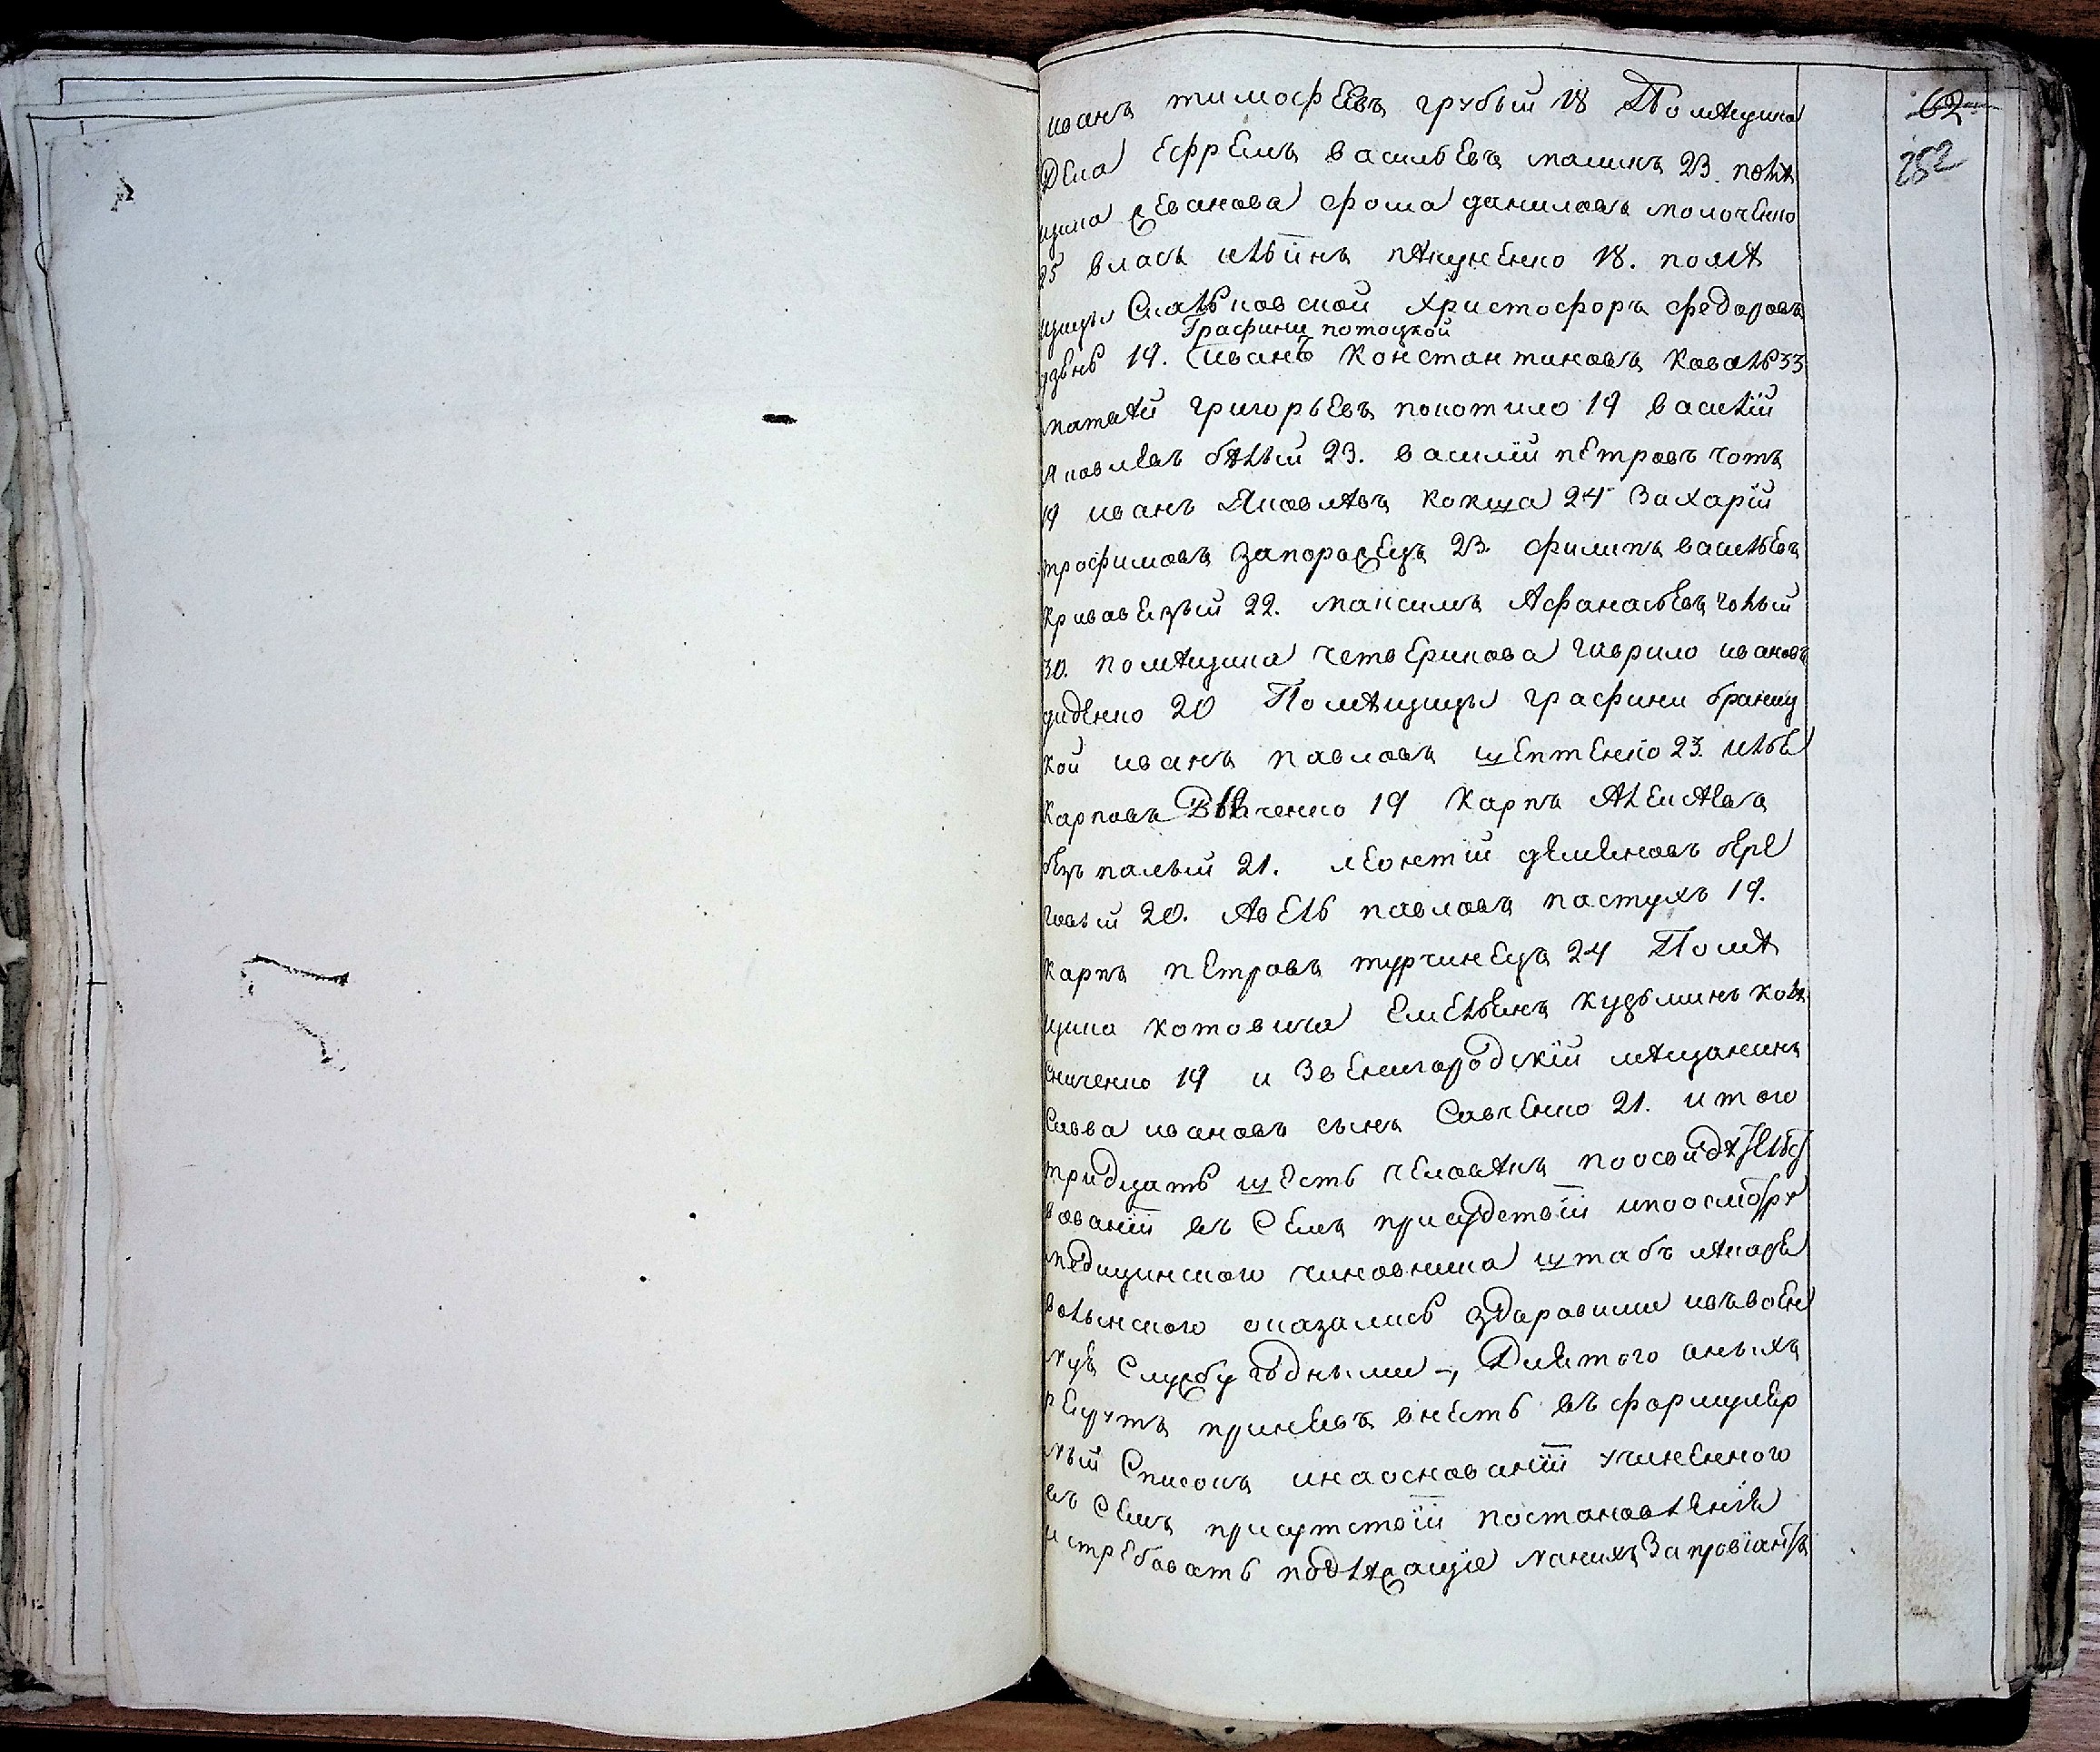 62
252
иванъ тимофѣевъ грубый 18 Помѣщика
Дена Ефремъ васильевъ маликъ 23. помѣ
щика Еванова фома даниловъ молоченко
25 власъ ильинъ пѣкуненко 18. помѣ
щицы Смальковской христофоръ федоровъ
Графини потоцкой
19. иванъ константиновъ коваль 33
матвѣй григорьевъ покотило 19 василій
яковлевъ бѣлый 23. василій петровъ чотъ
19 иванъ Яковлѣвъ кокша 24 Захарій
трофимовъ запорожецъ 23. филипъ васильевъ
кривавецкый 22. максимъ Афанасьевъ чолый
30. помѣщика четверикова гаврило ивановъ
диденко 20 Помѣщицы графини браниц
кой иванъ павловъ шептенко 23. илья
карповъ 19 карпъ Алексѣевъ
безпалый 21. леонтій деменовъ бере
говый 20. Авель павловъ пастухъ 19.
карпъ петровъ турчинецъ 24 Помѣ
щика котовича Емельянъ кузьминъ кол
сниченко 19 и Звенигородскій мѣщанинъ
Савва ивановъ сынъ Савченко 21. итого
тридцать шесть человѣкъ поосвидѣтельст
вованіи въ Семъ присудствіи ипоосмотру
медицинского чиновника штабъ лѣкаря
волынского оказались здаровими икъвоен
нуя Службу годными –, Длятого аныхъ
рекрутъ принявъ внесть въ формуляр
ный Списокъ инаоснованіи учиненного
въ Семъ присутствіи постановленія
истребовать подлѣжащіе наникъ Запровіантъ